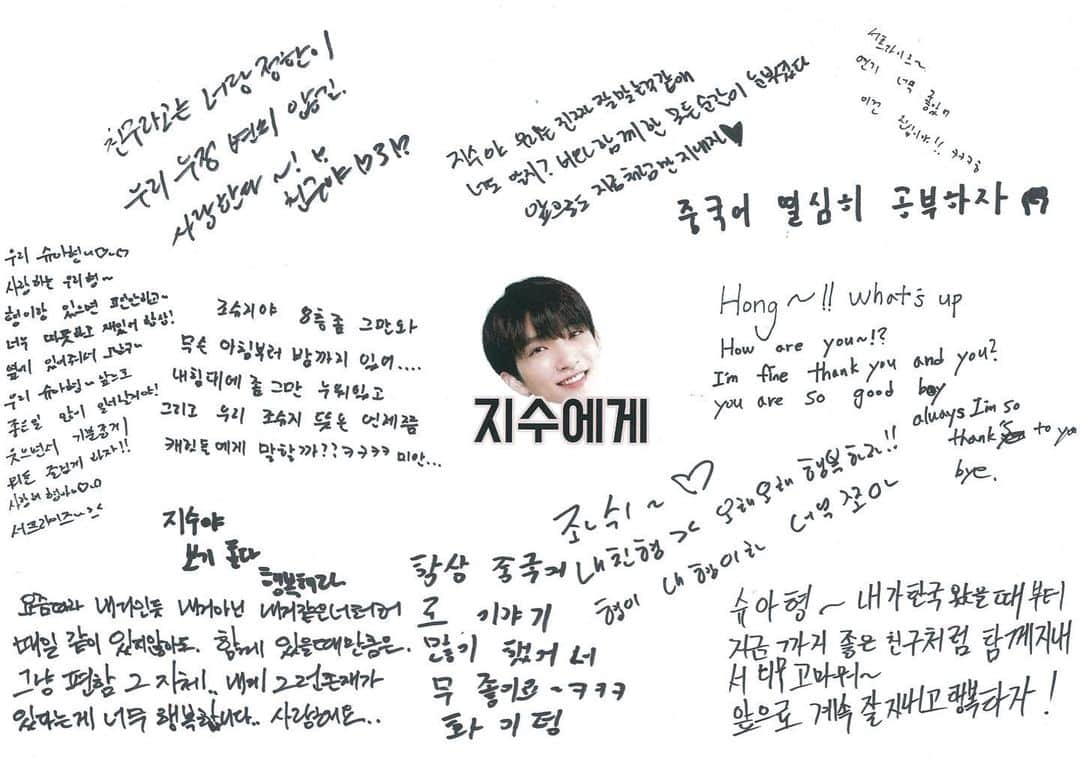 친구라고는 너랑 정한이
우리 우정 변치 않길.
사랑한다~!
친구야
지수야 우리는 진짜 잘 맞는것같애
너도 알지? 너와 함께한 모든 순간이 눈부셨다
앞으로도 지금처럼만 지내자♥
서프라이즈~
연기 너무 좋았어
이건 진심이야!! ㅋㅋㅋ
중국어 열심히 공부하자
우리 슈아형~♡~♡
사랑하는 우리형~
형이랑 있으면 편안하고~
너무 따뜻하고 재밌어 항상!
옆에 있어줘서 고맙구~
우리 슈아형~ 앞으로
좋은일 많이 일어날거야!
웃으면서 기분좋게
뭐든 즐겁게 하자!!
사랑해 형아~♡.♡
서프라이즈~><
조슈지야 8층 좀 그만와
무슨 아침부터 밤까지 있어....
내침대에 좀 그만 누워있고
그리고 우리 조슈지 뜻은 언제쯤
캐럿들에게 말할까?? ㅋㅋㅋㅋ 미안...
지수에게
Hong~!! What's up
How are you~!?
I'm fine thank you and you?
you are so good boy
always I'm so
thank to you
bye.
조슈~♡
내친형 >< 오래오래 행복하자!!
형이 내 형이라 너무 좋아
지수야
보기 좋다
행복해라
요즘따라 내거인듯 내거아닌 내거같은너
매일 같이 있진않아도. 함께 있을때만큼은.
그냥 편함 그 자체.. 내게 그런존재가
있다는게 너무 행복합니다.. 사랑해요..
항상 중국어
로 기야기
많기 했거 서
무 좋이요~ㅋㅋㅋ
화 기텅
슈아형~ 내가한국 왔을때 부터
지금 까지 좋은 친구처럼 함께지내
서 너무 고마워~
앞으로 계속 잘 지내고 행복하자!